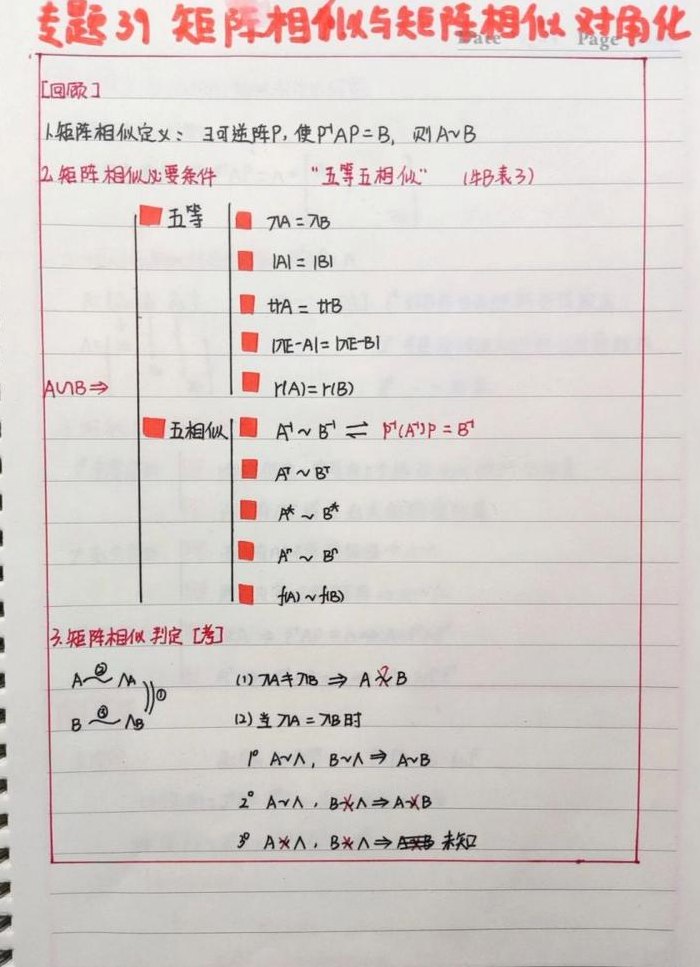 专题39 矩阵相似与矩阵相似对角化
Date Page
[回顾]
1.矩阵相似定义：∃可逆阵P，使P⁻¹AP=B，则A~B
2.矩阵相似必要条件 “五等五相似” （牛B表3）
五等 λA=λB
|A|=|B|
trA=trB
|λE-A|=|λE-B|
A∽B⇒ r(A)=r(B)
五相似 A⁻¹~B⁻¹ ⇌ P⁻¹(A⁻¹)P=B⁻¹
Aᵀ~Bᵀ
A*~B*
Aⁿ~Bⁿ
f(A)~f(B)
3.矩阵相似判定[考]
A ②~ ΛA (1) λA≠λB ⇒ A≁B
①
B ③~ ΛB (2) 当λA=λB时
1° A~Λ，B~Λ⇒A~B
2° A~Λ，B≁Λ⇒A≁B
3° A≁Λ，B≁Λ⇒ 未知